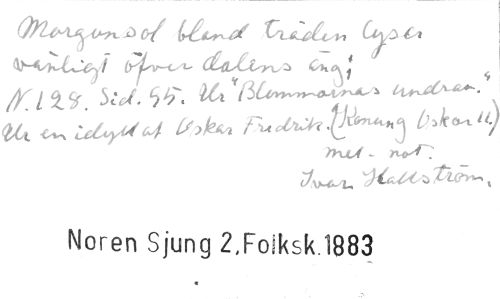 Morgonsol bland träden lyser
vänligt öfver dalens äng;
N. 128. Sid. 95. Ur "Blommornas undran."
Ur en idyll af Oskar Fredrik. (Konung Oskar II.)
mel. not.
Ivar Hallström.
Noren Sjung 2, Folksk. 1883